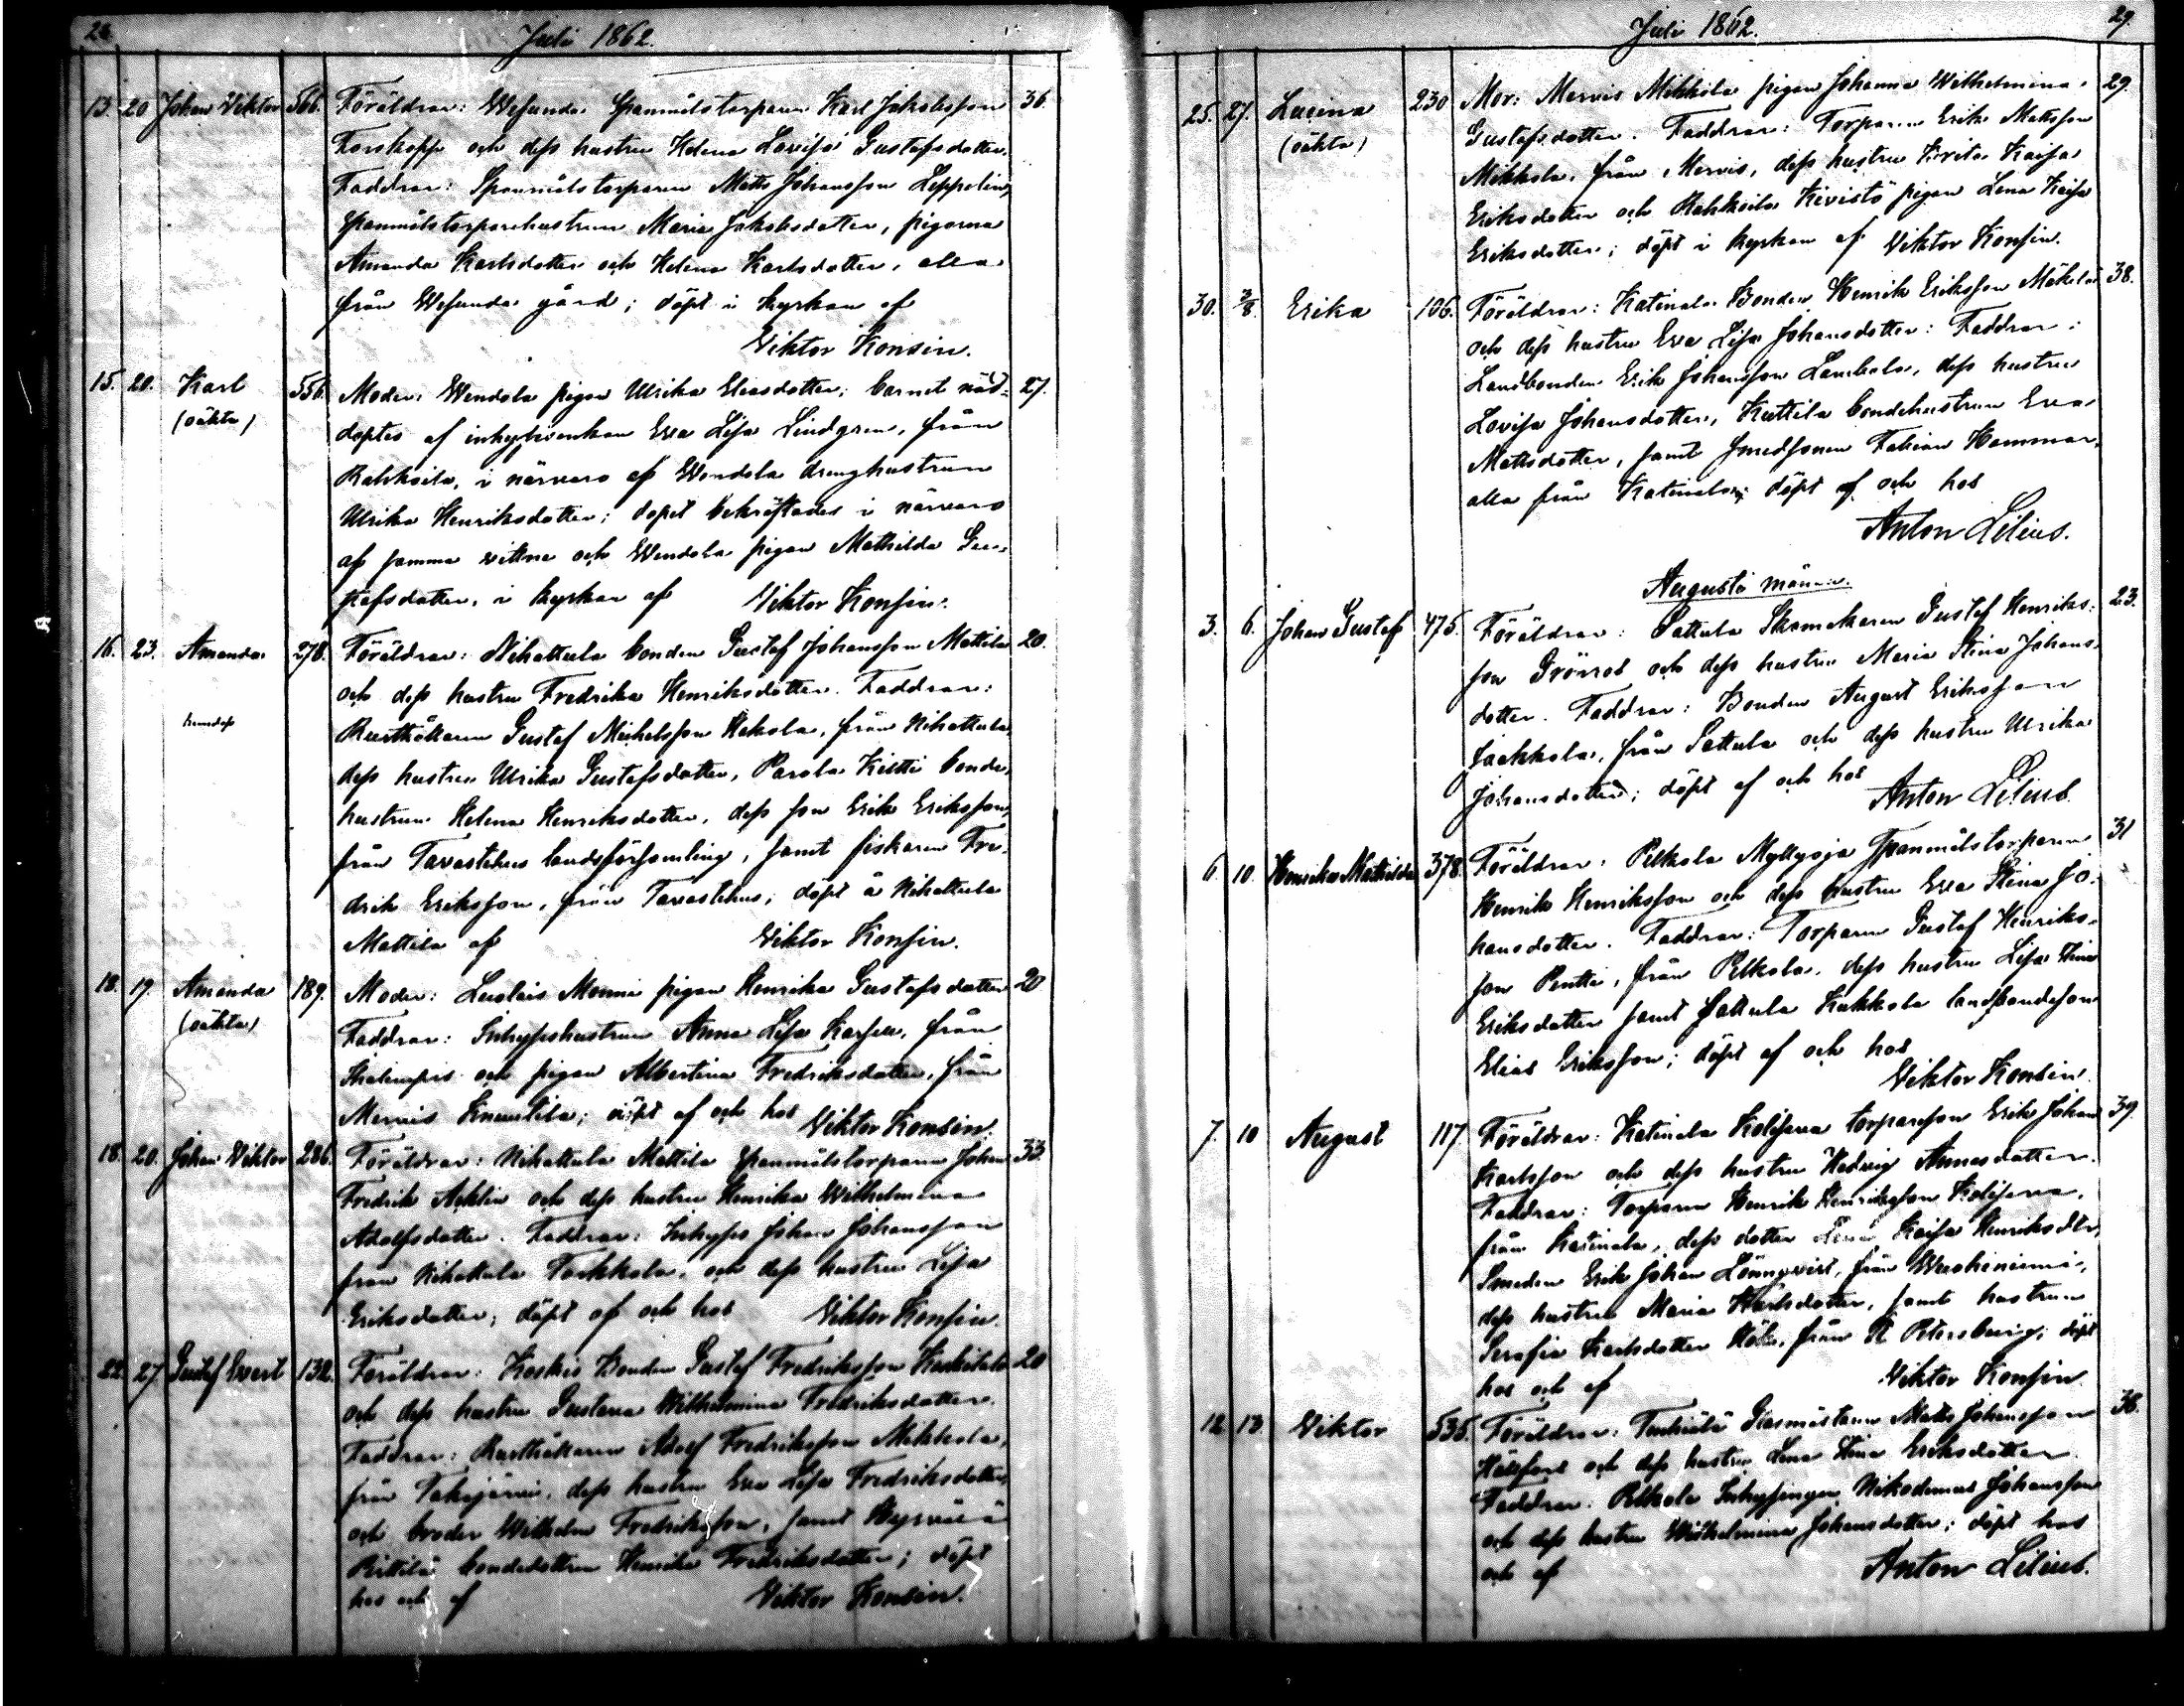 28. Juli 1862.
13. 20 Johan Viktor 566. Föräldrar: Wesunda Spannmålstorparen Karl Jakobsson 36.
Forskopp och dess hustru Helena Lovisa Gustafsdotter.
Faddrar: Spannmålstorparen Matts Johansson Leppelin,
spannmålstorparehustrun Maria Jakobsdotter, pigorna
Amanda Karlsdotter och Helena Karlsdotter, alla
från Wesunda gård; döpt i kyrkan af
Viktor Konsin.
15. 20. Karl 556. Moder: Wendola pigan Ulrika Eliasdotter; barnet nöd- 27.
(oäkta) döptes af inhyseenkan Eva Lisa Lindgren, från
Rahkoila, i närvaro af Wendola drenghustrun
Ulrika Henriksdotter; dopet bekräftades i närvaro
af samma vittne och Wendola pigan Mathilda Gus-
tafsdotter, i kyrkan af Viktor Konsin.
16. 23. Amanda 278. Föräldrar: Nihattula bonden Gustaf Johansson Mattila 20.
och dess hustru Fredrika Henriksdotter. Faddrar:
Rusthållaren Gustaf Michelsson Hakola, från Nihattula,
dess hustru Ulrika Gustafsdotter, Parola Kiltti bonde-
hustrun Helena Henriksdotter, dess son Erik Eriksson,
från Tavastehus landsförsamling, samt fiskaren Fre-
drik Eriksson, från Tavastehus; döpt å Nihattula
Mattila af Viktor Konsin.
18. 19. Amanda 189. Moder: Leiniais Monni pigan Henrika Gustafsdotter 20
(oäkta) Faddrar: Inhyseshustrun Anna Lisa Karsen, från
och pigan Albertina Fredriksdotter, från
Mervis Knuutila; döpt af och hos Viktor Konsin.
18. 20. Johan Viktor 286. Föräldrar: Nihattula Mattila spannmålstorparen Johan 33.
Fredrik Acklin och dess hustru Henrika Wilhelmina
Adolfsdotter. Faddrar: Inhyses Johan Johansson
från Nihattula Torkkola, och dess hustru Lisa
Eriksdotter; döpt af och hos Viktor Konsin.
22. 27 Gustaf Evert 132. Föräldrar: Koskis Bonden Gustaf Fredriksson 20
och dess hustru Gustava Wilhelmina Fredriksdotter.
Faddrar: Rusthållaren Adolf Fredriksson Mikkola,
från Takajärvi, dess hustru Eva Lisa Fredriksdotter,
och broder Wilhelm Fredriksson, samt
Rittilä bondedottren Henrika Fredriksdotter; döpt
hos och af Viktor Konsin.
Juli 1862. 29.
25. 27. Lucina 230 Mor: Mervis Mikkola pigan Johanna Wilhelmina 29.
(oäkta) Gustafsdotter. Faddrar: Torparen Erik Mattsson
Mikkola, från Mervis, dess hustru Brita Kaisa
Eriksdotter och Rahkoila Kivistö pigan Lena Kaisa
Eriksdotter; döpt i kyrkan af Viktor Konsin.
30. 3/8. Erika 106. Föräldrar: Katinala Bonden Henrik Eriksson Mäkelä 38.
och dess hustru Eva Lisa Johansdotter: Faddrar:
Landbonden Erik Johansson Lambola, dess hustru
Lovisa Johansdotter, Kuttila bondehustrun Eva
Mattsdotter, samt smedsonen Fabian Hammar,
alla från Katinala; döpt af och hos
Anton Lilius.
Augusti månad.
3. 6. Johan Gustaf 475. Föräldrar: Sattula Skomakaren Gustaf Henriks- 23.
son Grönros och dess hustru Maria Stina Johans-
dotter. Faddrar: Bonden August Eriksson
Jackkola, från Sattula och dess hustru Ulrika
Johansdotter; döpt af och hos Anton Lilius.
6. 10. Henrika Mathilda 378. Föräldrar: Pelkola Myllyoja Spannmålstorparen 31
Henrik Henriksson och dess hustru Eva Stina Jo-
hansdotter. Faddrar: Torparen Gustaf Henriks-
son Pentti, från Pelkola, dess hustru Lisa Stina
Eriksdotter samt Sattula Kukkola landbondeson
Elias Eriksson; döpt af och hos
Viktor Konsin.
7. 10 August 117. Föräldrar: Katinala Kolisewa torpareson Erik Johan 39.
Karlsson och dess hustru Hedvig Annasdotter.
Faddrar: Torparen Henrik Henriksson Kolisewa,
från Katinala, dess dotter Lena Kaisa Henriksdtr,
Smeden Erik Johan Lönnqvist, från Wuohiniemi,
dess hustru Maria Karlsdotter, samt hustrun
Serafia Karlsdotter från St Petersburg; döpt
hos och af Viktor Konsin.
12 13. Viktor 535. Föräldrar: Tenhiälä Glasmästaren Matts Johansson 38.
Hälsfors och dess hustru Lena Stina Eriksdotter.
Faddrar: Pelkola Inhysingen Nikodemus Johansson
och dess hustru Wilhelmina Johansdotter; döpt hos
och af Anton Lilius.